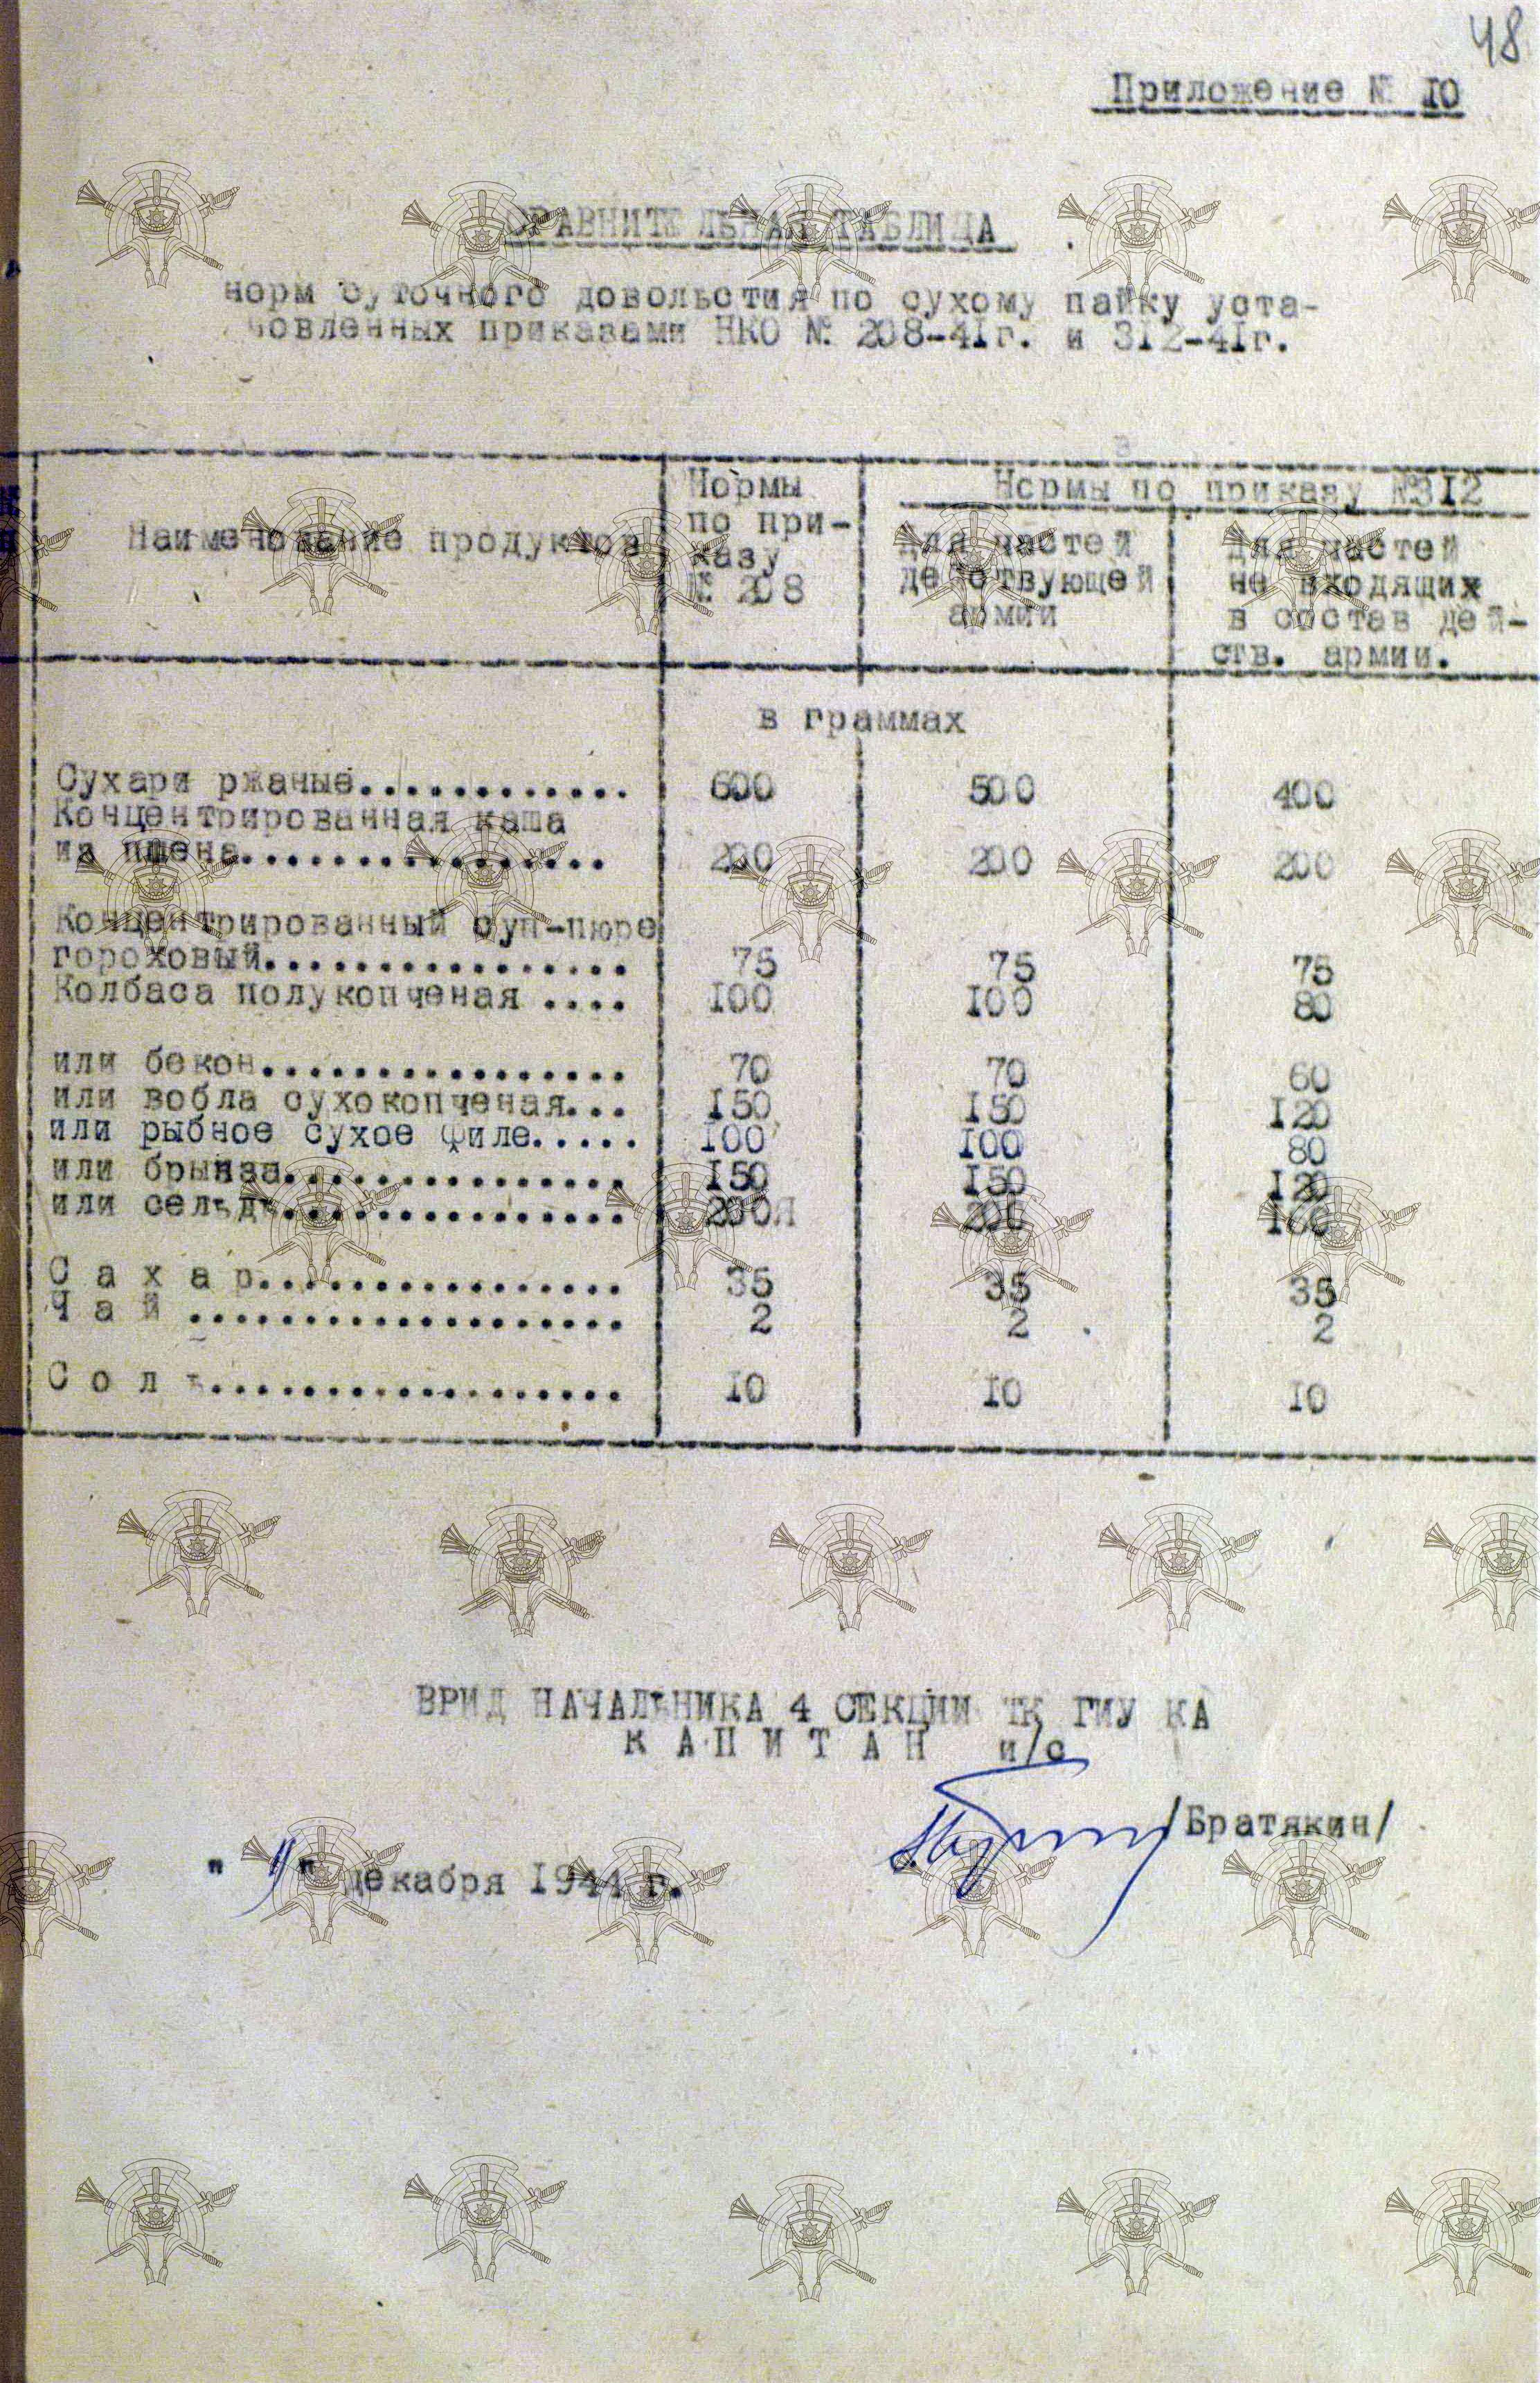 48
Приложение № 10
СРАВНИТЕЛЬНАЯ ТАБЛИЦА
норм суточного довольстия по сухому пайку уста-
новленных приказами НКО № 208-41г. и 312-41г.
Наименование продуктов
Нормы
по при-
казу
№ 208
Нормы по приказу №312
для частей
действующей
армии
для частей
не входящих
в состав дей-
ств. армии.
в граммах
Сухари ржаные............ 600 500 400
Концентрированная каша
из пшена................ 200 200 200
Концентрированный суп-пюре
гороховый................ 75 75 75
Колбаса полукопченая .... 100 100 80
или бекон................ 70 70 60
или вобла сухокопченая... 150 150 120
или рыбное сухое филе..... 100 100 80
или брынза............... 150 150 120
или сельдь............... 200 200 160
С а х а р................ 35 35 35
Ч а й ................... 2 2 2
С о л ь.................. 10 10 10
ВРИД НАЧАЛЬНИКА 4 СЕКЦИИ ТК ГИУ КА
К А П И Т А Н и/с
/Братякин/
" " декабря 1944 г.